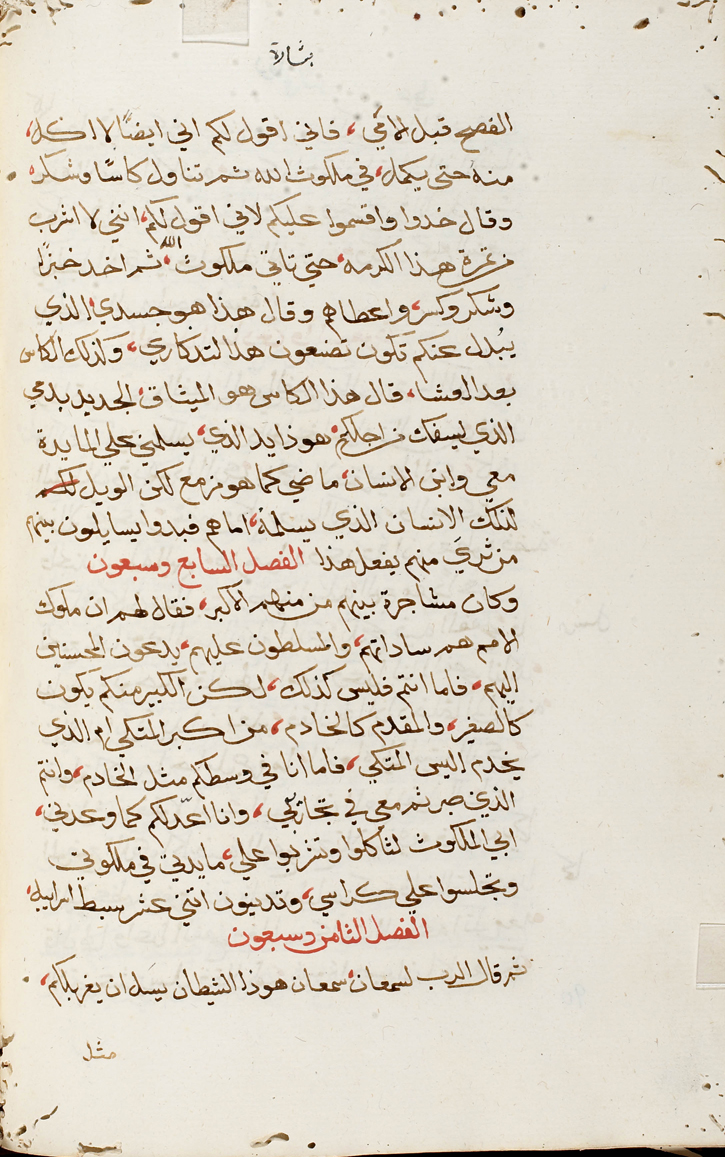 بشارة
الفصح قبل الامي، فاني اقول لكم اني ايضًا لا اكل،
منه حتى يكمل، في ملكوت الله ثم تناول كاسًا وشكر،
وقال خدوا واقسموا عليكم لاني اقول لكم، انني لا اشرب
من ثمرة هذا الكرمه، حتي تاتي ملكوث الله، ثم اخد خبزًا
وشكر وكسر، واعطاهم وقال هذا هو جسدي، الذي
يبدل عنكم تكون تصنعون هذا لتدكاري، وكذلك الكاس
بعد العشا، قال هذا الكاس هو الميثاق، الجديد بدمي
الذي يسفك من اجلكم، هوذا يد الذي، يسلمني علي المايدة
معي وابن الانسان، ماضي كما هو مزمع لكن الويل
لذلك الانسان الذي يسلمه، اما هم فبدوا يسايلون بينهم
من تري منهم يفعل هذا الفصل السابع وسبعون
وكان مشاجرة بينهم من منهم الاكبر، فقال لهم ان ملوك
الامم هم ساداتهم، والمسلطون عليهم، يدعون المحسنين
اليهم، فاما انتم فليس كذلك، لكن الكبير منكم يكون
كالصغير، والمقدم كالخادم، من اكبر المتكي ام الدي
يخدم اليس المتكي، فاما انا في وسطكم مثل الخادم، وانتم
الذين صبرتم معي في تجاربي، وانا اعدلكم كما وعدني،
ابي الملكوت لتاكلوا وتشربوا علي، مايدتي في ملكوتي
وتجلسوا علي كراسي، وتدينون اتني عشر سبط اسراييل،
الفصل الثامن وسبعون
ثم قال الرب لسمعان، سمعان هوذا الشيطان يسل ان يغربلكم،
مثل